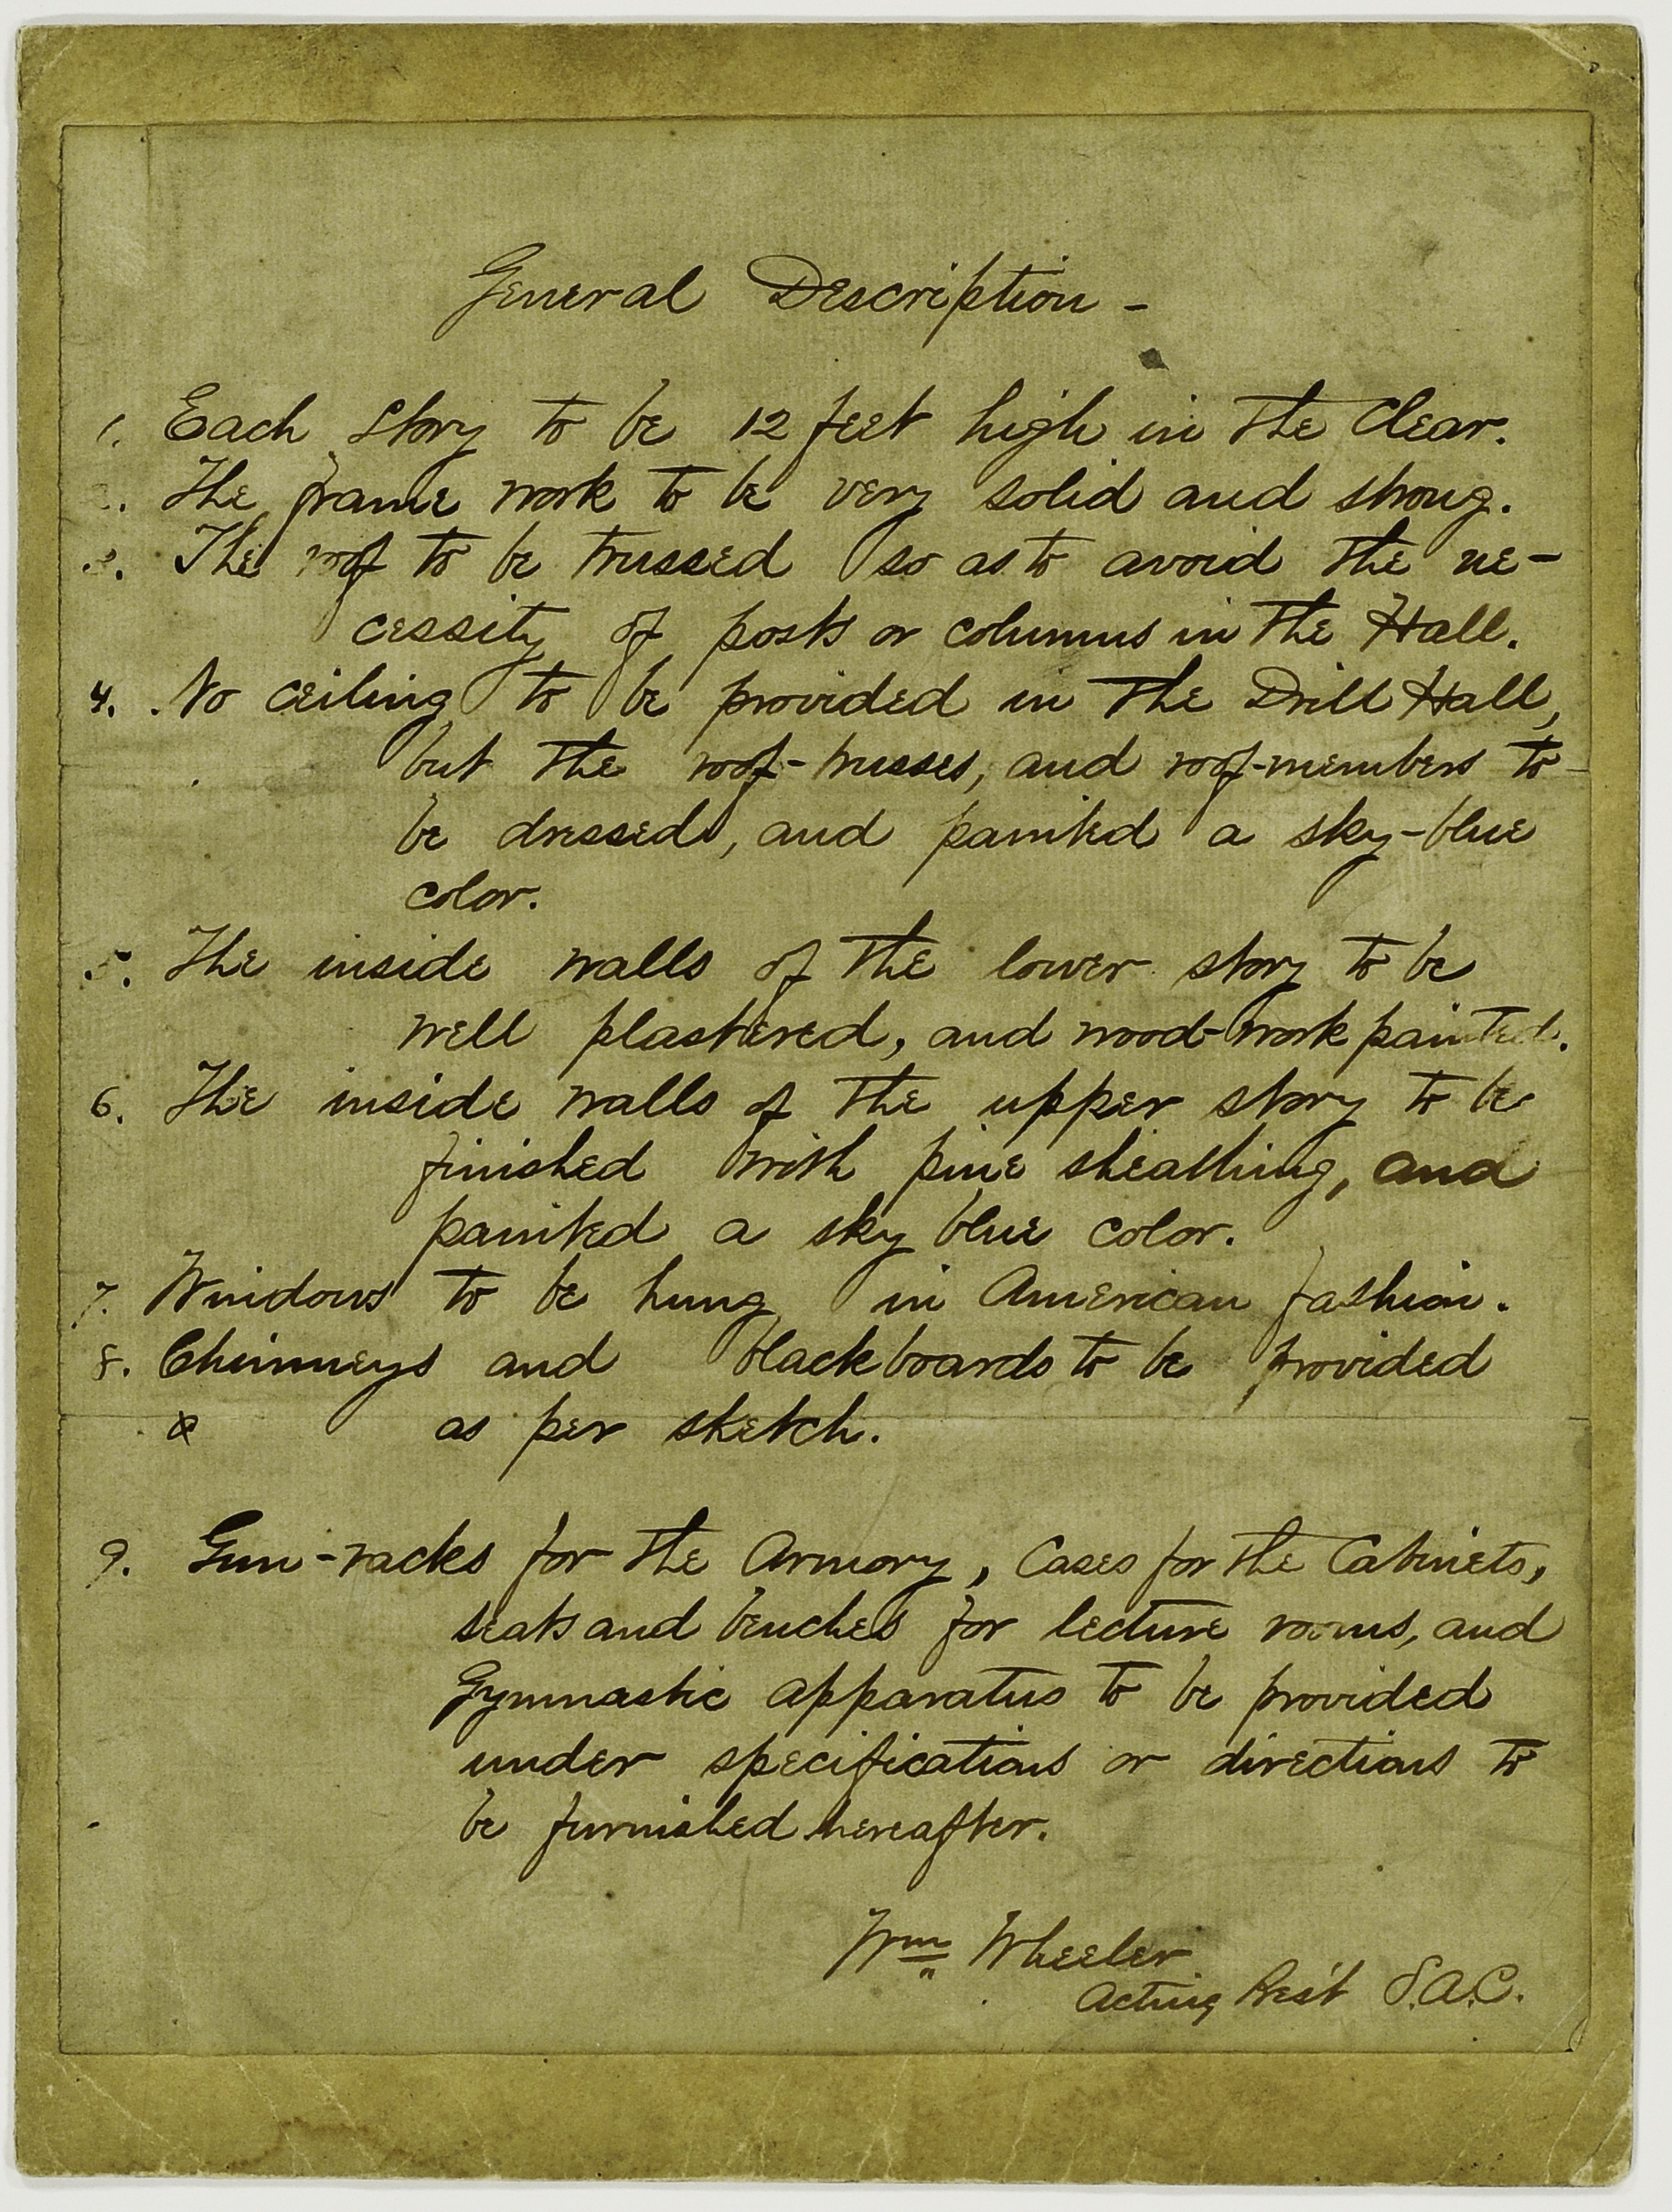 General Description -
1. Each story to be 12 feet high in the clear.
2. The frame work to be very solid and strong.
3. The roof to be trussed so as to avoid the ne-
cessity of posts or columns in the Hall.
4. No ceiling to be provided in the Drill Hall,
but the roof-trusses, and roof-members to
be dressed, and painted a sky-blue
color.
5. The inside walls of the lower story to be
well plastered, and wood-work painted.
6. The inside walls of the upper story to be
finished with pine sheathing, and
painted a sky blue color.
7. Windows to be hung in American fashion.
8. Chimneys and blackboards to be provided
as per sketch.
9. Gun-racks for the Armory, Cases for the Cabinets,
seats and benches for lecture rooms, and
Gymnastic apparatus to be provided
under specifications or directions to
be furnished hereafter.
Wm Wheeler
Acting Pres't S.A.C.